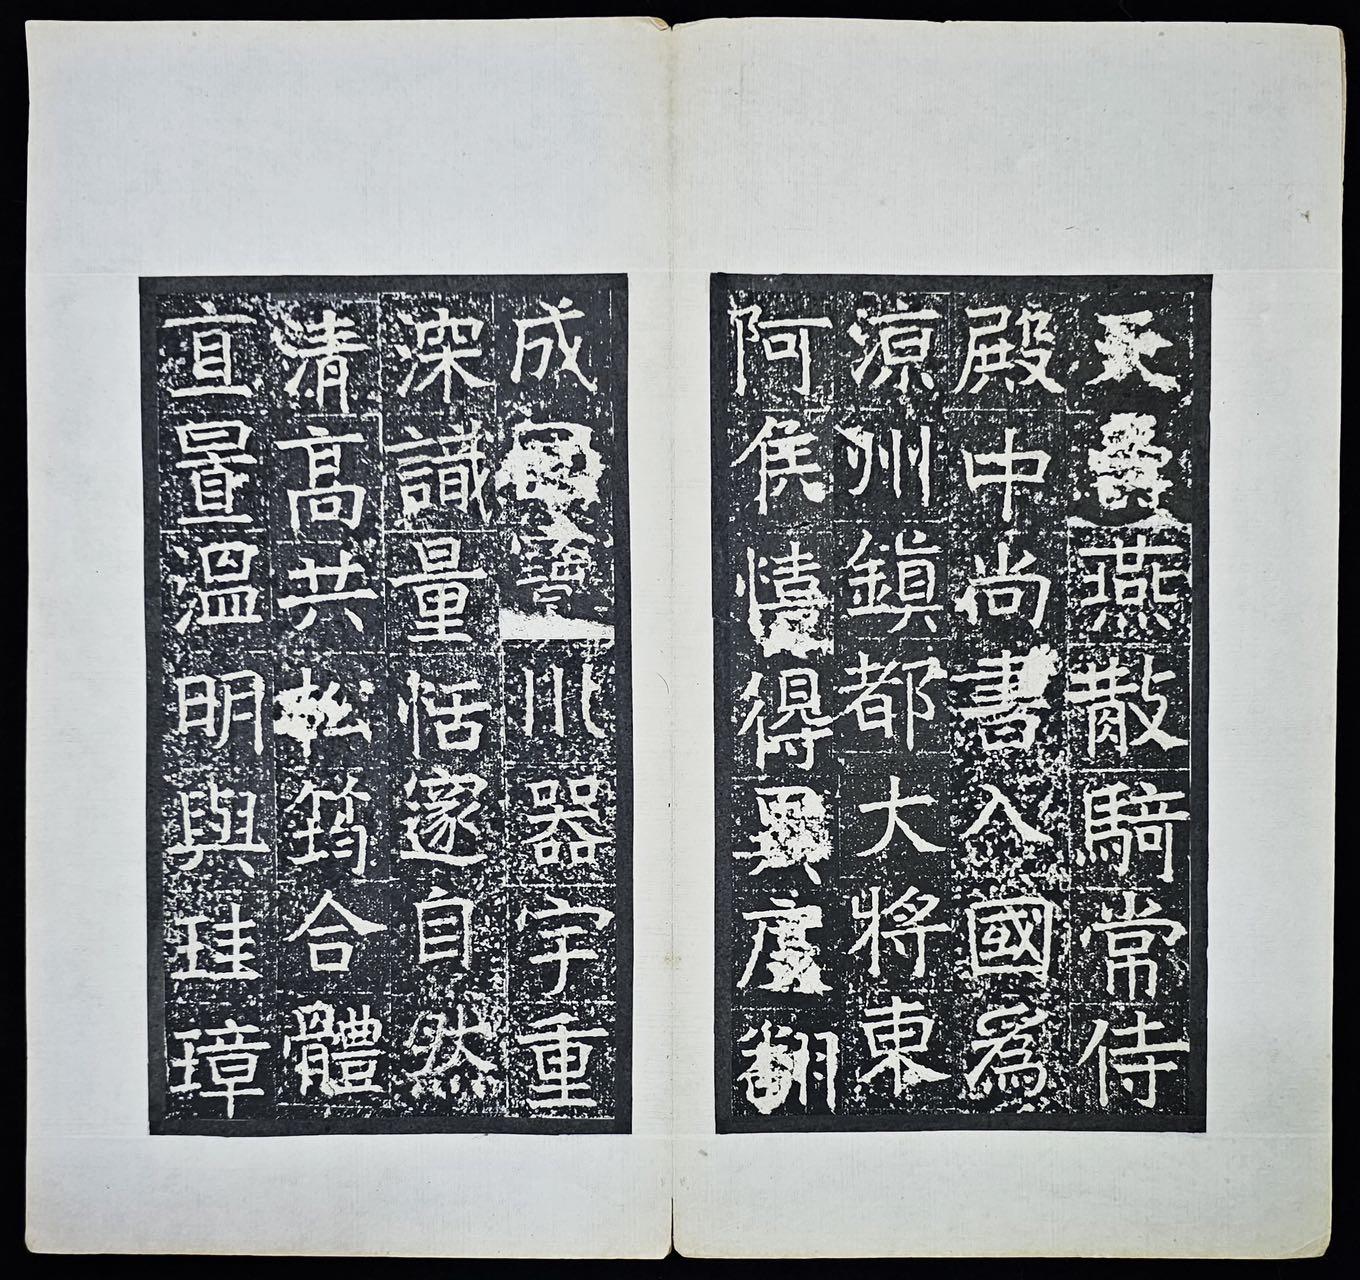 天燕散騎常侍
殿中尚書入國爲
涼州鎮都大將東
阿侯憘得異度翻
成川器宇重
深識量恬邃自然
清高共松筠合體
亶量溫明與珪璋